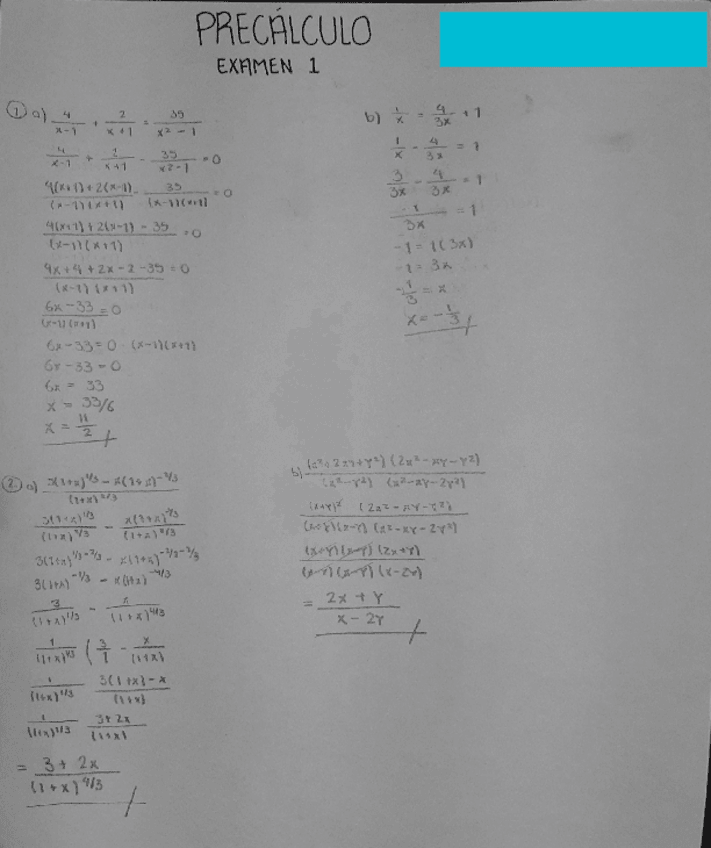 PRECÁLCULO
EXAMEN 1
1) a) 4/(x-1) + 2/(x+1) = 35/(x²-1)
4/(x-1) + 2/(x+1) - 35/(x²-1) = 0
(4(x+1)+2(x-1))/((x-1)(x+1)) - 35/((x-1)(x+1)) = 0
(4(x+1)+2(x-1)-35)/((x-1)(x+1)) = 0
(4x+4+2x-2-35)/((x-1)(x+1)) = 0
(6x-33)/((x-1)(x+1)) = 0
6x-33 = 0 (x-1)(x+1)
6x-33 = 0
6x = 33
x = 33/6
x = 11/2
b) 1/x = 4/3x + 1
1/x - 4/3x = 1
3/3x - 4/3x = 1
-1/3x = 1
-1 = 1(3x)
-1 = 3x
-1/3 = x
x = -1/3
2) a) (3(1+x)^1/3 - x(1+x)^-2/3)/(1+x)^2/3
3(1+x)^1/3/(1+x)^2/3 - x(1+x)^-2/3/(1+x)^2/3
3(1+x)^1/3-2/3 - x(1+x)^-2/3-2/3
3(1+x)^-1/3 - x(1+x)^-4/3
3/(1+x)^1/3 - x/(1+x)^4/3
1/(1+x)^1/3 (3/1 - x/(1+x)
1/(1+x)^1/3 (3(1+x)-x)/(1+x)
1/(1+x)^1/3 (3+2x)/(1+x)
= (3 + 2x)/(1+x)^4/3
b) (x²+2xy+y²)(2x²-xy-y²)/(x²-y²)(x²-xy-2y²)
(x+y)²(2x²-xy-y²)/(x+y)(x-y)(x²-xy-2y²)
(x+y)(x-y)(2x+y)/(x-y)(x+y)(x-2y)
= (2x + y)/(x - 2y)